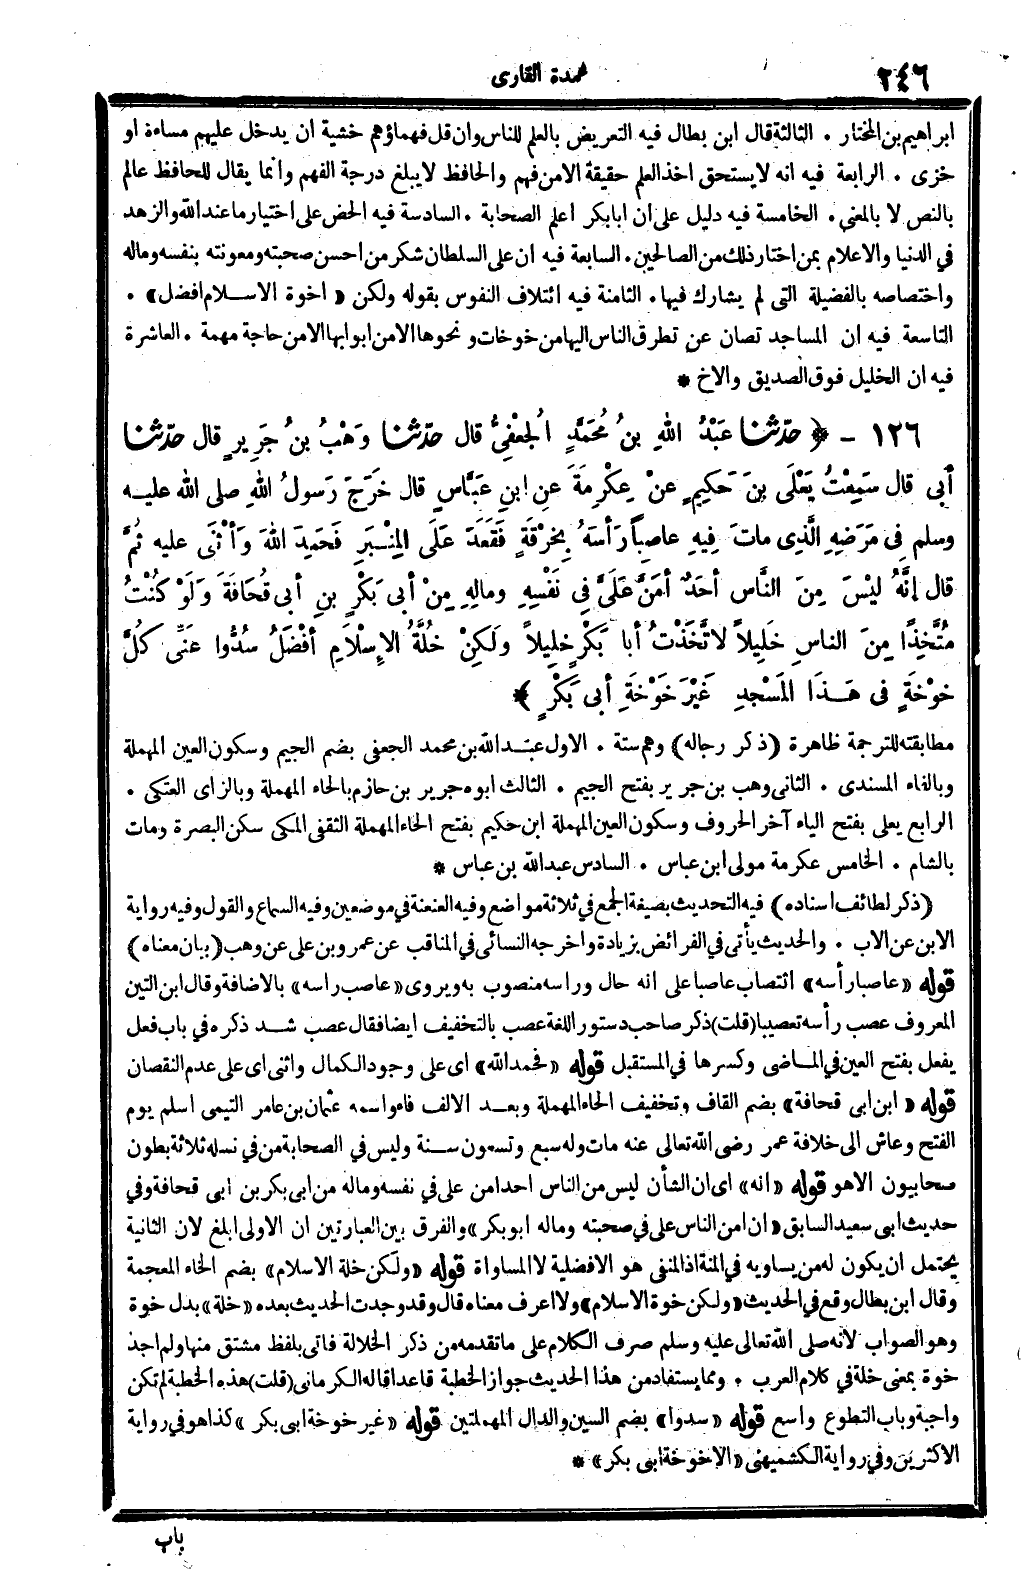 ٢٤٦ عمدة القارى
ابراهيم بن المختار . الثالثة قال ابن بطال فيه التعريض بالعلم للناس وان قل فهماؤهم خشية ان يدخل عليهم مساءة او
خزى . الرابعة فيه انه لا يستحق اخذ العلم حقيقة الامن فهم والحافظ لا يبلغ درجة الفهم وانما يقال للحافظ عالم
بالنص لا بالمعنى . الخامسة فيه دليل على ان ابا بكر اعلم الصحابة . السادسة فيه الحض على اختيار ما عند الله والزهد
في الدنيا والاعلام بمن اختار ذلك من الصالحين . السابعة فيه ان على السلطان شكر من احسن صحبته ومعونته بنفسه وماله
واختصاصه بالفضيلة التى لم يشارك فيها . الثامنة فيه ائتلاف النفوس بقوله ولكن « اخوة الاسلام افضل » .
التاسعة فيه ان المساجد تصان عن تطرق الناس اليها من خوخات ونحوها الا من ابوابها الا من حاجة مهمة . العاشرة
فيه ان الخليل فوق الصديق والاخ *
١٢٦ - ﴿ حدّثنا عَبْدُ اللهِ بنُ مُحَمَّدٍ الجُعْفِيُّ قال حدّثنا وَهْبُ بنُ جَرِيرٍ قال حدّثنا
أبى قال سَمِعْتُ يَعْلَى بنَ حَكِيمٍ عنْ عِكْرِمَةَ عنِ ابنِ عَبَّاسٍ قال خَرَجَ رَسولُ اللهِ صلى الله عليه
وسلم فِى مَرَضِهِ الَّذِى ماتَ فِيهِ عاصِباً رَأسَهُ بِخرْقَةٍ فَقَعَدَ عَلَى المِنْبَرِ فَحَمِدَ اللهَ وَأثْنَى عليه ثُمَّ
قال إنَّهُ ليْسَ مِنَ النَّاس أحَدٌ أمَنَّ عَلَىَّ فِى نَفْسِهِ ومالِهِ مِنْ أبى بَكْرِ بنِ أبى قُحافَةَ وَلَوْ كُنْتُ
مُتَّخِذًا مِنَ الناسِ خَلِيلاً لاتَّخَذْتُ أبا بَكْرٍ خَلِيلاً ولَكِنْ خُلَّةُ الإسْلَامِ أفْضَلُ سُدُّوا عَنِّى كُلَّ
خوْخَةٍ فى هَذَا المَسْجدِ غَيْرَ خَوْخَةِ أبى بَكْرٍ ﴾ *
مطابقته للترجمة ظاهرة (ذكر رجاله) وهم ستة . الاول عبد الله بن محمد الجعفى بضم الجيم وسكون العين المهملة
وبالفاء المسندى . الثانى وهب بن جرير بفتح الجيم . الثالث ابوه جرير بن حازم بالحاء المهملة وبالزاى العتكى .
الرابع يعلى بفتح الياء آخر الحروف وسكون العين المهملة ابن حكيم بفتح الحاء المهملة الثقفى المكى سكن البصرة ومات
بالشام . الخامس عكرمة مولى ابن عباس . السادس عبد الله بن عباس *
(ذكر لطائف اسناده) فيه التحديث بصيغة الجمع في ثلاثة مواضع وفيه العنعنة في موضعين وفيه السماع والقول وفيه رواية
الابن عن الاب . والحديث يأتى في الفرائض بزيادة واخرجه النسائى في المناقب عن عمرو بن على عن وهب (بيان معناه)
قوله «عاصبا رأسه» انتصاب عاصبا على انه حال وراسه منصوب به ويروى «عاصب راسه» بالاضافة وقال ابن التين
المعروف عصب رأسه تعصيبا (قلت) ذكر صاحب دستور اللغة عصب بالتخفيف ايضا فقال عصب شد ذكره في باب فعل
يفعل بفتح العين في الماضى وكسرها في المستقبل قوله «فحمد الله» اى على وجود الكمال واثنى اى على عدم النقصان
قوله « ابن ابى قحافة» بضم القاف وتخفيف الحاء المهملة وبعد الالف فاء واسمه عثمان بن عامر التيمى اسلم يوم
الفتح وعاش الى خلافة عمر رضى الله تعالى عنه مات وله سبع وتسعون سنة وليس في الصحابة من في نسله ثلاثة بطون
صحابيون الا هو قوله «انه» اى ان الشأن ليس من الناس احد امن على في نفسه وماله من ابى بكر بن ابى قحافة وفي
حديث ابى سعيد السابق «ان امن الناس على في صحبته وماله ابو بكر» والفرق بين العبارتين ان الاولى ابلغ لان الثانية
يحتمل ان يكون له من يساويه في المنة اذ المنفى هو الافضلية لا المساواة قوله «ولكن خلة الاسلام» بضم الخاء المعجمة
وقال ابن بطال وقع في الحديث «ولكن خوة الاسلام» ولا اعرف معناه قال وقد وجدت الحديث بعده «خلة» بدل خوة
وهو الصواب لانه صلى الله تعالى عليه وسلم صرف الكلام على ما تقدمه من ذكر الخلالة فاتى بلفظ مشتق منها ولم اجد
خوة بمعنى خلة في كلام العرب . ومما يستفاد من هذا الحديث جواز الخطبة قاعدا قاله الكرمانى (قلت) هذه الخطبة لم تكن
واجبة وباب التطوع واسع قوله «سدوا» بضم السين والدال المهملتين قوله «غير خوخة ابى بكر» كذا هو في رواية
الاكثرين وفي رواية الكشميهنى «الا خوخة ابى بكر» *
باب